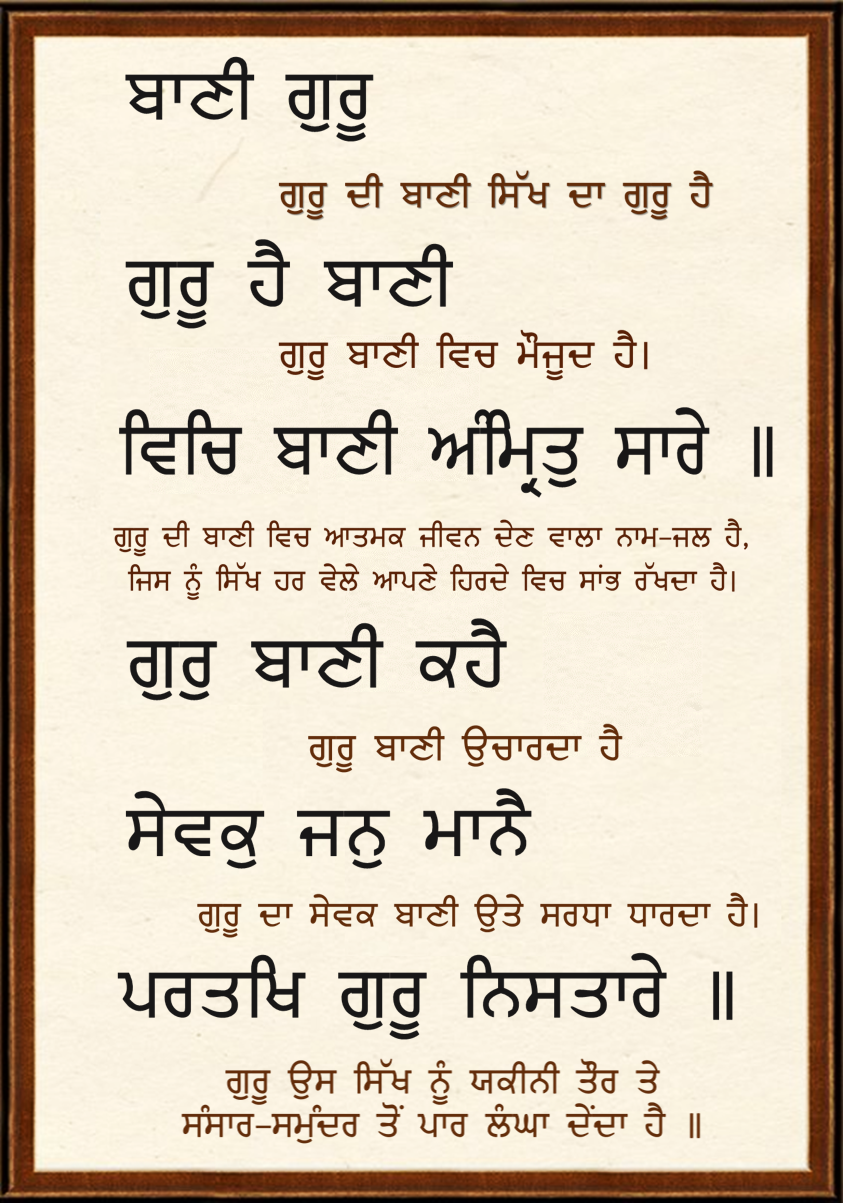 ਬਾਣੀ ਗੁਰੂ
ਗੁਰੂ ਦੀ ਬਾਣੀ ਸਿੱਖ ਦਾ ਗੁਰੂ ਹੈ
ਗੁਰੂ ਹੈ ਬਾਣੀ
ਗੁਰੂ ਬਾਣੀ ਵਿਚ ਮੌਜੂਦ ਹੈ।
ਵਿਚਿ ਬਾਣੀ ਅੰਮ੍ਰਿਤੁ ਸਾਰੇ ॥
ਗੁਰੂ ਦੀ ਬਾਣੀ ਵਿਚ ਆਤਮਕ ਜੀਵਨ ਦੇਣ ਵਾਲਾ ਨਾਮ-ਜਲ ਹੈ,
ਜਿਸ ਨੂੰ ਸਿੱਖ ਹਰ ਵੇਲੇ ਆਪਣੇ ਹਿਰਦੇ ਵਿਚ ਸਾਂਭ ਰੱਖਦਾ ਹੈ।
ਗੁਰੁ ਬਾਣੀ ਕਹੈ
ਗੁਰੂ ਬਾਣੀ ਉਚਾਰਦਾ ਹੈ
ਸੇਵਕੁ ਜਨੁ ਮਾਨੈ
ਗੁਰੂ ਦਾ ਸੇਵਕ ਬਾਣੀ ਉਤੇ ਸਰਧਾ ਧਾਰਦਾ ਹੈ।
ਪਰਤਖਿ ਗੁਰੂ ਨਿਸਤਾਰੇ ॥
ਗੁਰੂ ਉਸ ਸਿੱਖ ਨੂੰ ਯਕੀਨੀ ਤੌਰ ਤੇ
ਸੰਸਾਰ-ਸਮੁੰਦਰ ਤੋਂ ਪਾਰ ਲੰਘਾ ਦੇਂਦਾ ਹੈ ॥